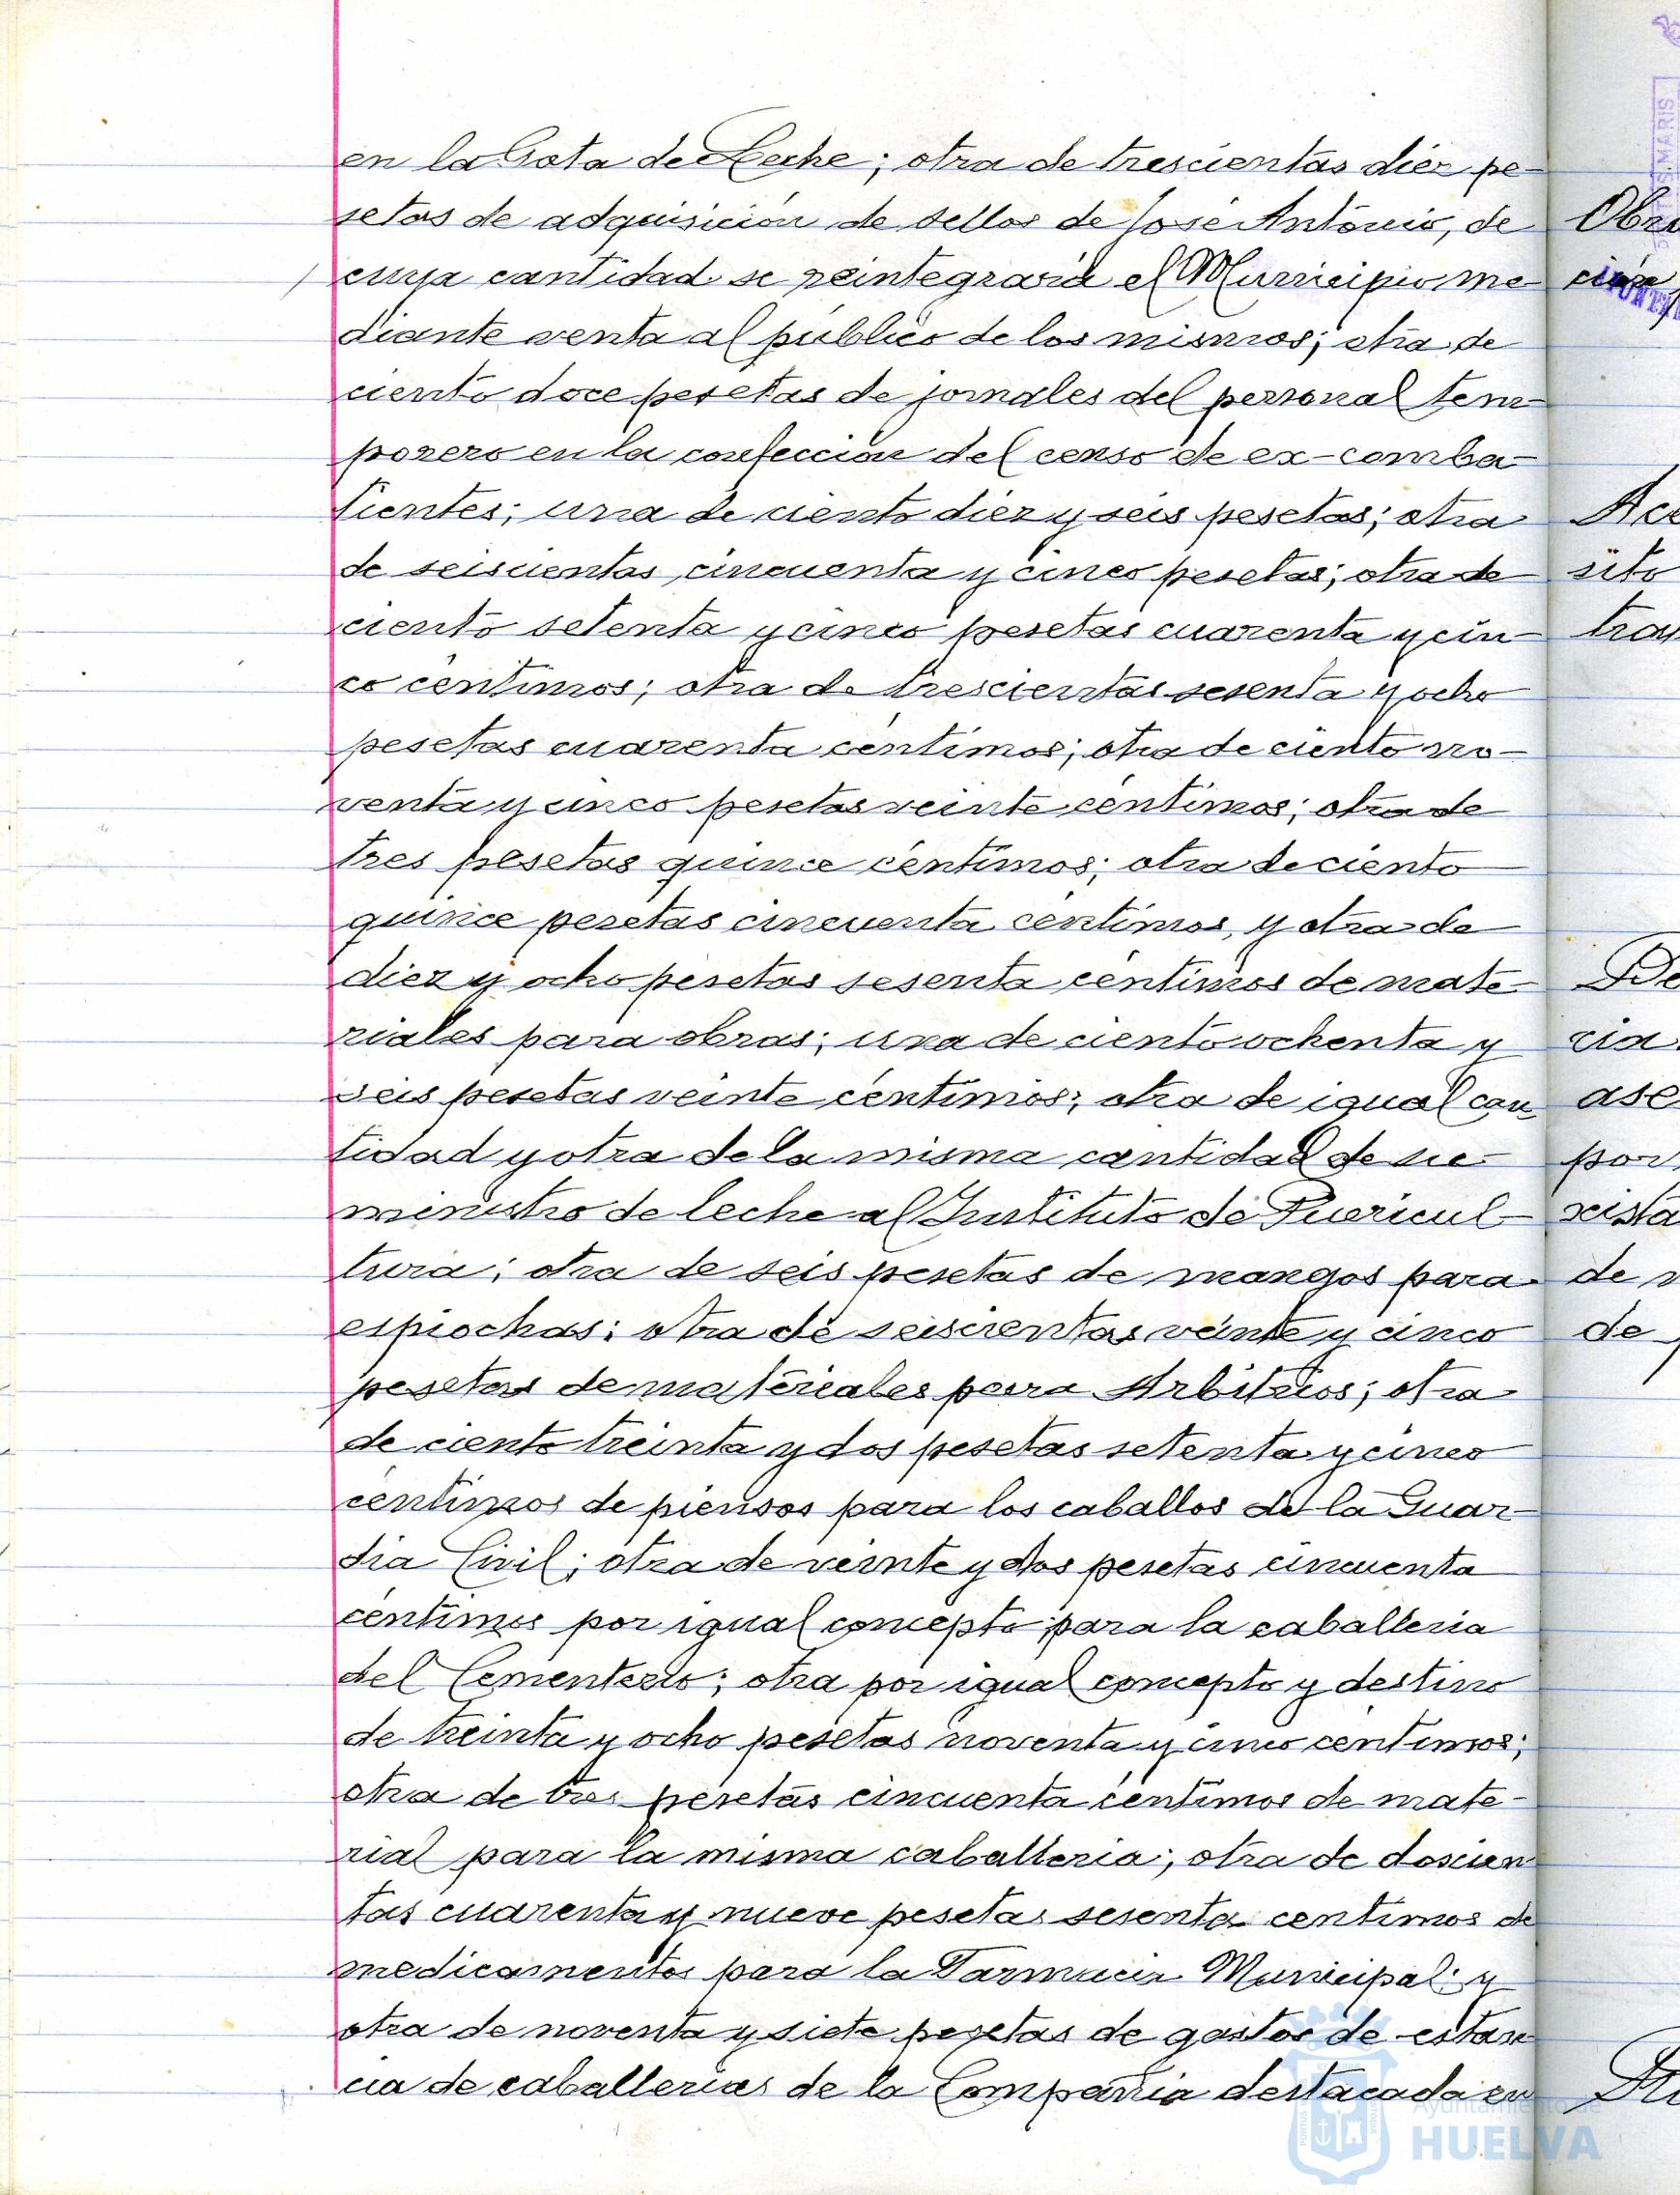 en la Gota de Leche; otra de trescientas diez pe-
setas de adquisición de sellos de José Antonio, de
cuya cantidad se reintegrará el Municipio me-
diante venta al público de los mismos; otra de
ciento doce pesetas de jornales del personal tem-
porero en la confección del censo de ex-comba-
tientes; una de ciento diez y seis pesetas; otra
de seiscientas cincuenta y cinco pesetas; otra de
ciento setenta y cinco pesetas cuarenta y cin-
co céntimos; otra de trescientas sesenta y ocho
pesetas cuarenta céntimos; otra de ciento no-
venta y cinco pesetas veinte céntimos; otra de
tres pesetas quince céntimos; otra de ciento
quince pesetas cincuenta céntimos, y otra de
diez y ocho pesetas sesenta céntimos de mate-
riales para obras; una de ciento ochenta y
seis pesetas veinte céntimos; otra de igual can-
tidad y otra de la misma cantidad de su-
ministro de leche al Instituto de Puericul-
tura; otra de seis pesetas de mangos para
espiochas; otra de seiscientas veinte y cinco
pesetas de materiales para Arbitrios; otra
de ciento treinta y dos pesetas setenta y cinco
céntimos de piensos para los caballos de la Guar-
dia Civil; otra de veinte y dos pesetas cincuenta
céntimos por igual concepto para la caballeria
del Cementerio; otra por igual concepto y destino
de treinta y ocho pesetas noventa y cinco centimos;
otra de tres pesetas cincuenta céntimos de mate-
rial para la misma caballeria; otra de doscien
tas cuarenta y nueve pesetas sesenta centimos de
medicamentos para la Farmacia Municipal; y
otra de noventa y siete pesetas de gastos de estan
cia de caballerias de la Compañia destacada en
Obra
Ace
sito
tras
De
cia
ase
por
xista
de
de
MARIS
Ayuntamiento de
HUELVA